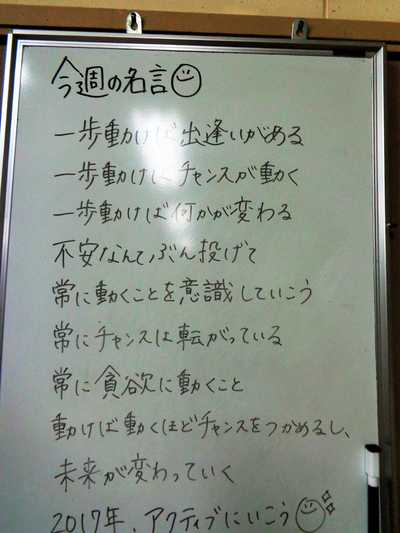 今週の名言
一歩動けば出逢いがある
一歩動けばチャンスが動く
一歩動けば何かが変わる
不安なんてぶん投げて
常に動くことを意識していこう
常にチャンスは転がっている
常に貪欲に動くこと
動けば動くほどチャンスをつかめるし、
未来が変わっていく
2017年、アクティブにいこう